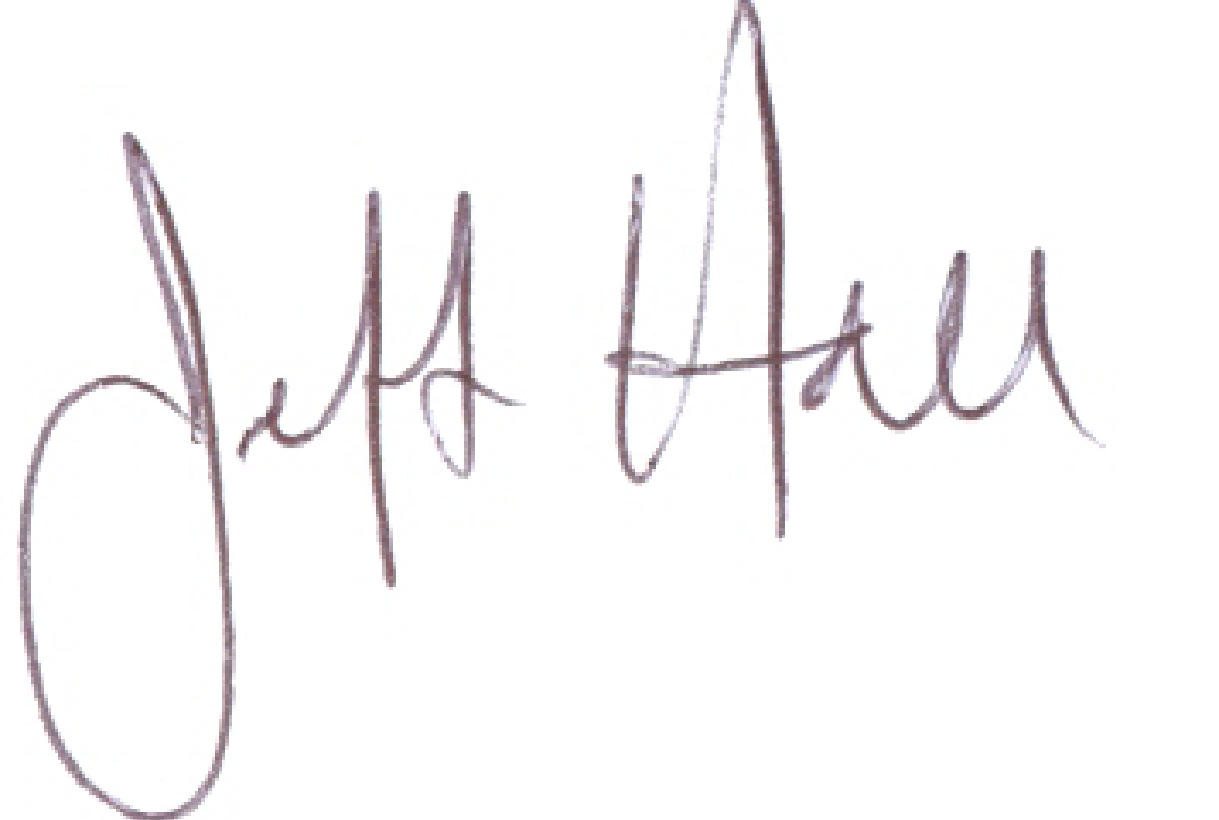 Jeff Hall